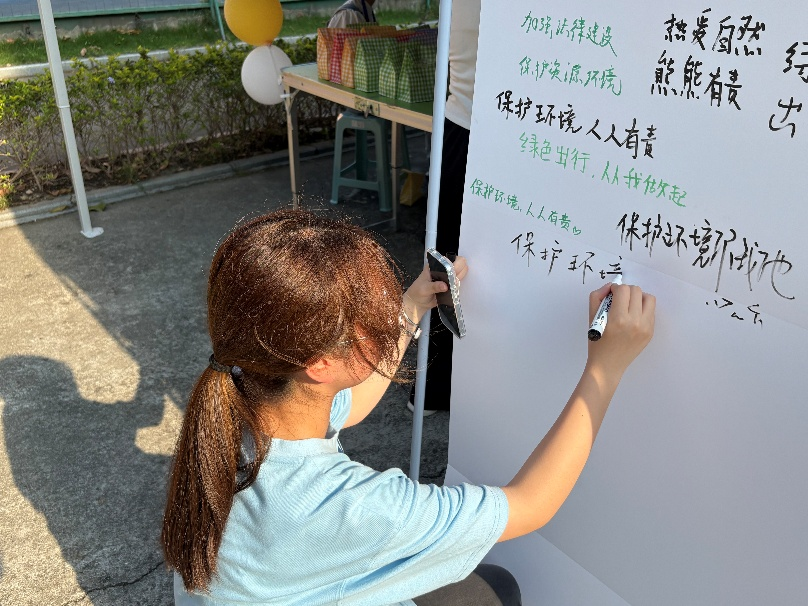 加强法律建设
保护资源环境
保护环境,人人有责
绿色出行,从我做起
保护环境,人人有责
保护环境
热爱自然
熊熊有责
绿
出
保护环境